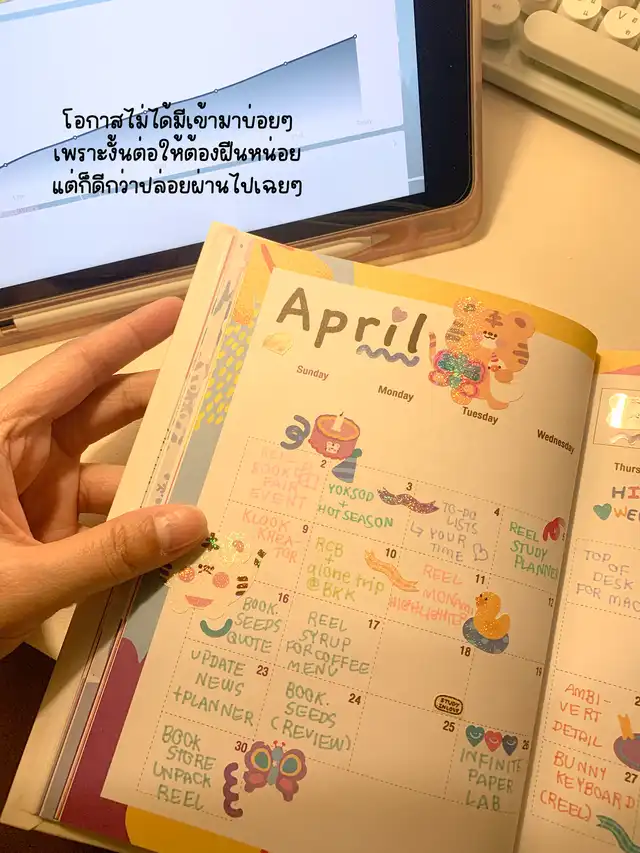 โอกาสไม่ได้มีเข้ามาบ่อยๆ
เพราะงั้นต่อให้ต้องฝืนหน่อย
แต่ก็ดีกว่าปล่อยผ่านไปเฉยๆ
April
Sunday
Monday
Tuesday
Wednesday
Thurs
2
BOOK
FAIR
EVENT
3
YOKSOD
+
HOT SEASON
4
TO-DO
LISTS
↳ YOUR
TIME
5
REEL
STUDY
PLANNER
HI
WE
9
KLOOK
KREA
TOR
10
RCB
+
alone trip
@BKK
11
REEL
MONAMI
HIGHLIGHTER
12
TOP OF
DESK
FOR MAC
16
BOOK.
SEEDS
QUOTE
17
REEL
SYRUP
FOR COFFEE
MENU
18
19
23
UPDATE
NEWS
+PLANNER
24
BOOK.
SEEDS
(REVIEW)
25
STUDY
IN LOVE
26
INFINITE
PAPER
LAB
AMBI-
VERT
DETAIL
27
BUNNY
KEYBOARD
(REEL)
30
BOOK
STORE
UNPACK
REEL